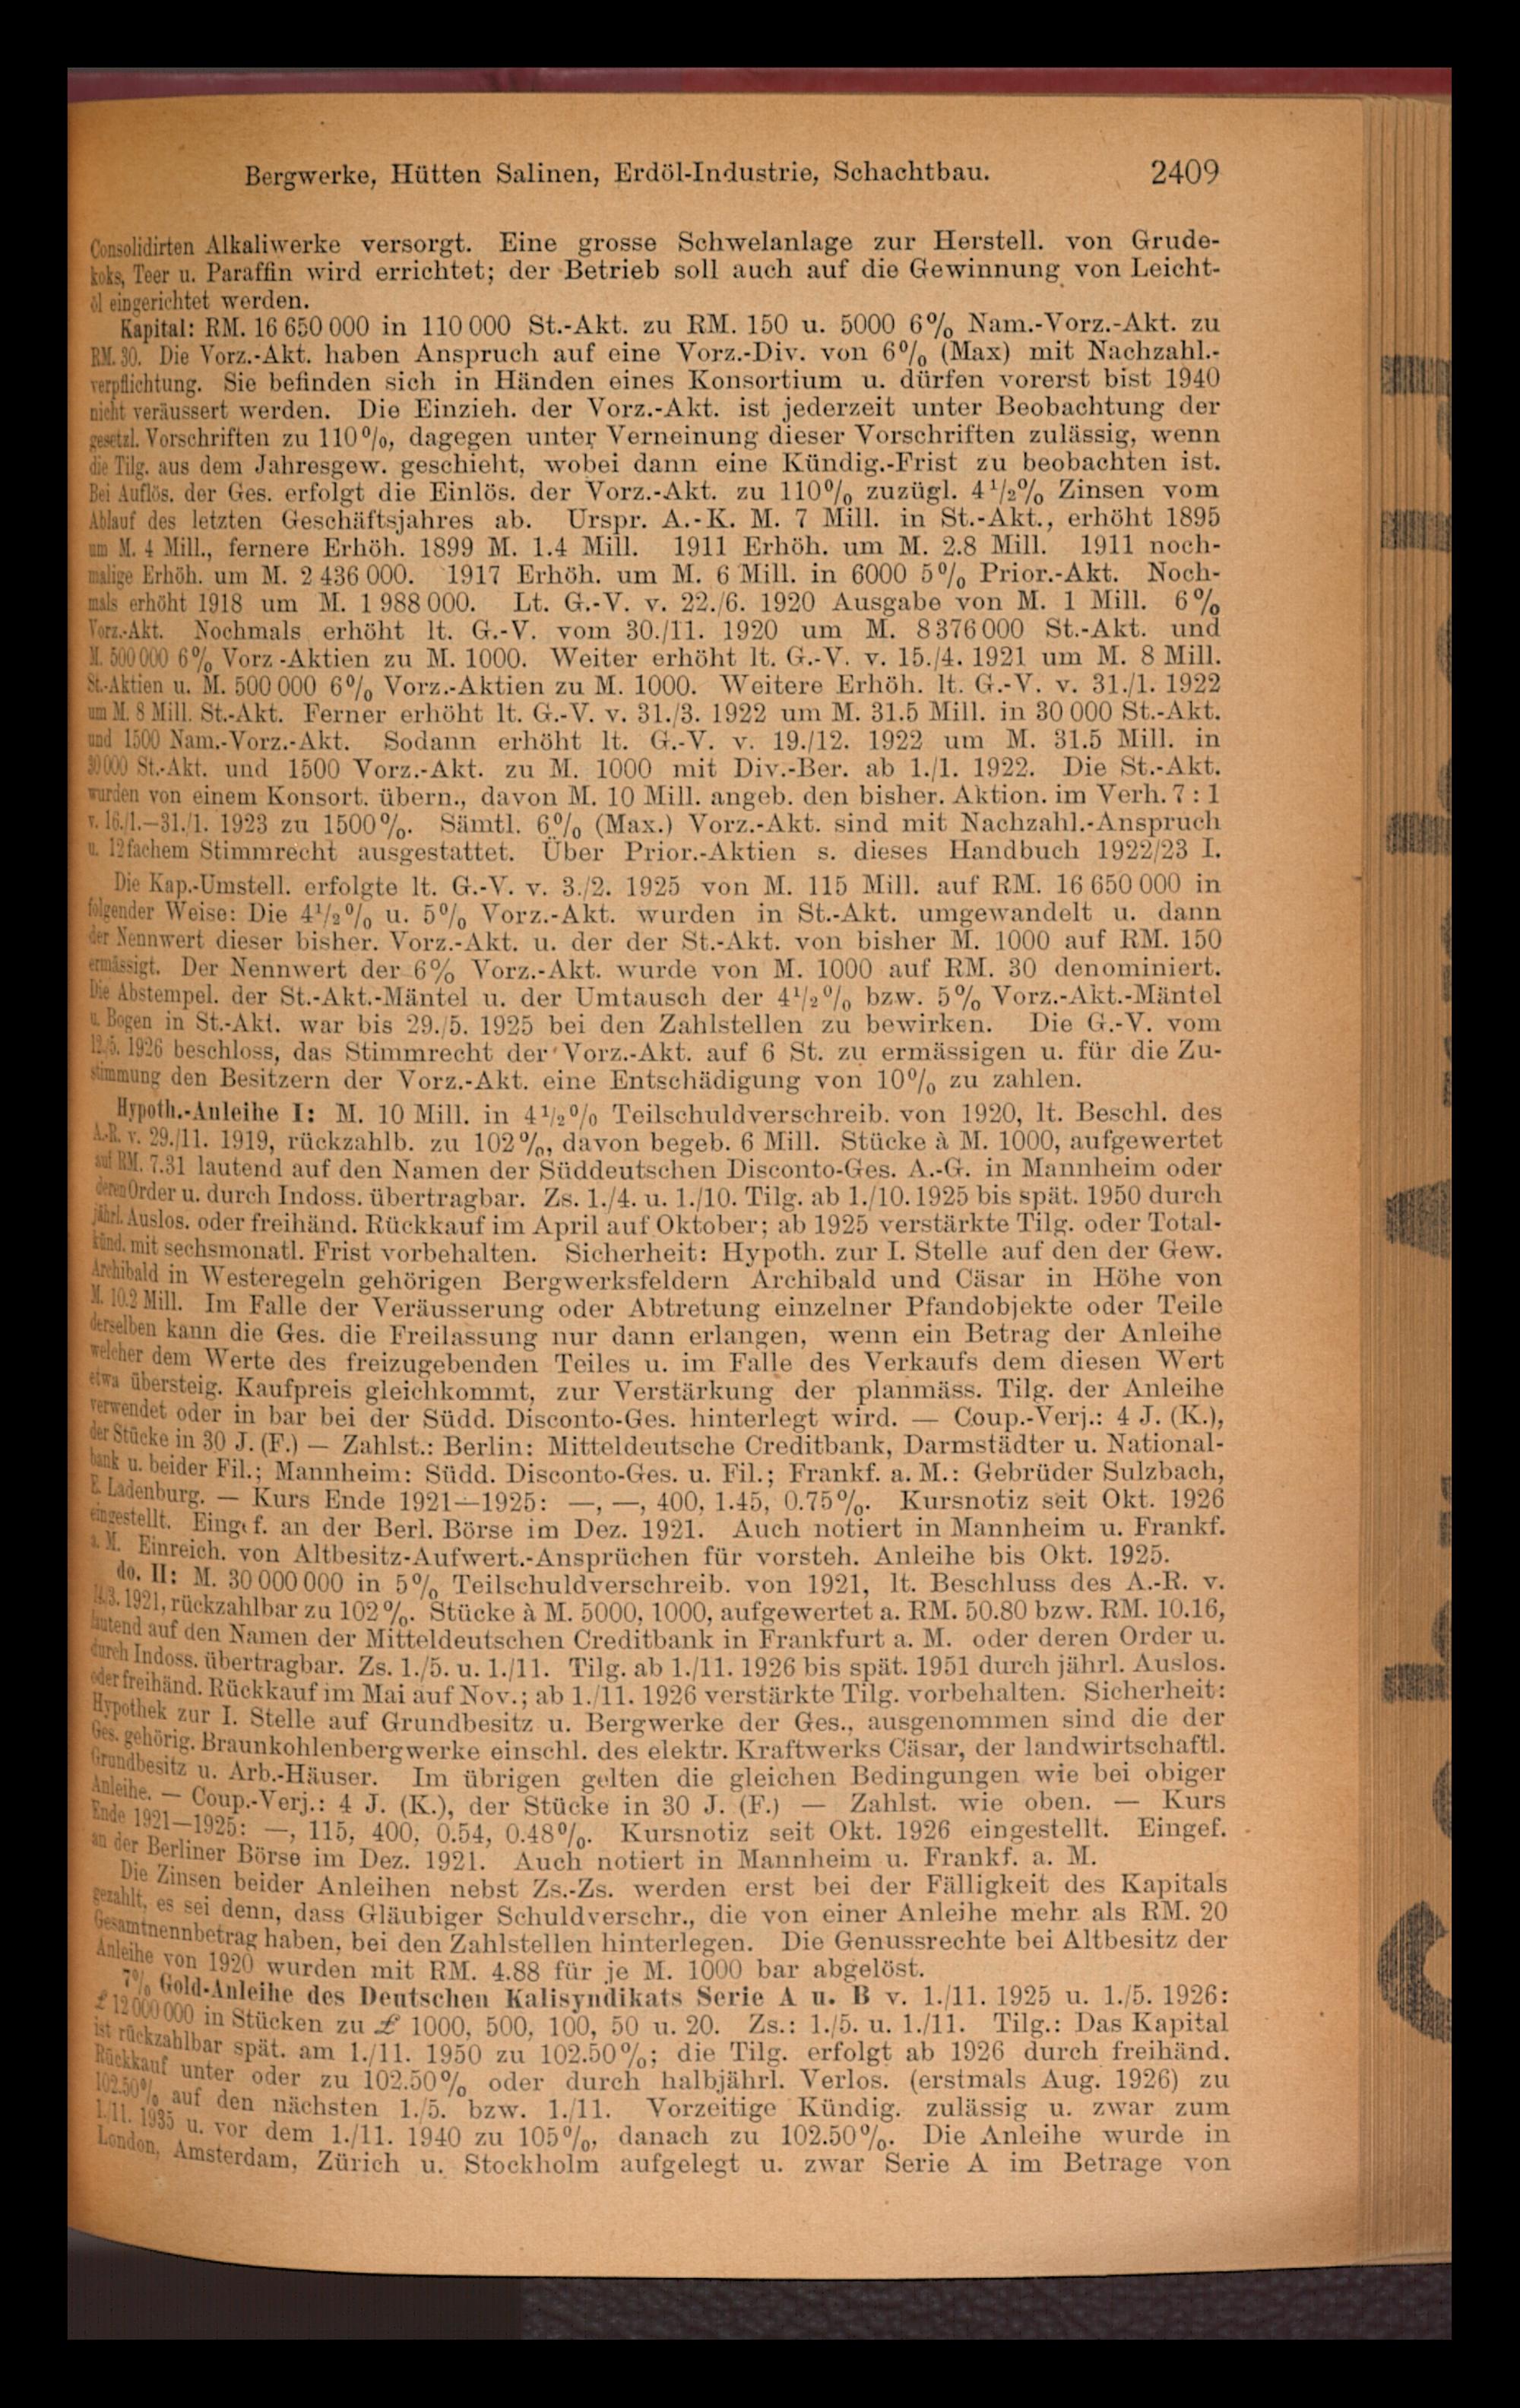 Bergwerke, Hütten Salinen, Erdöl-Industrie, Schachtbau. 2409
Consolidirten Alkaliwerke versorgt. Eine grosse Schwelanlage zur Herstell. von Grude-
koks, Teer u. Paraffin wird errichtet; der Betrieb soll auch auf die Gewinnung von Leicht-
öl eingerichtet werden.
Kapital: RM. 16 650 000 in 110 000 St.-Akt. zu RM. 150 u. 5000 6% Nam.-Vorz.-Akt. zu
RM. 30. Die Vorz.-Akt. haben Anspruch auf eine Vorz.-Div. von 6% (Max) mit Nachzahl.-
verpflichtung. Sie befinden sich in Händen eines Konsortium u. dürfen vorerst bist 1940
nicht veräussert werden. Die Einzieh. der Vorz.-Akt. ist jederzeit unter Beobachtung der
gesetzl. Vorschriften zu 110%, dagegen unter Verneinung dieser Vorschriften zulässig, wenn
die Tilg. aus dem Jahresgew. geschieht, wobei dann eine Kündig.-Frist zu beobachten ist.
Bei Auflös. der Ges. erfolgt die Einlös. der Vorz.-Akt. zu 110% zuzügl. 4 1/2% Zinsen vom
Ablauf des letzten Geschäftsjahres ab. Urspr. A.-K. M. 7 Mill. in St.-Akt., erhöht 1895
um M. 4 Mill., fernere Erhöh. 1899 M. 1.4 Mill. 1911 Erhöh. um M. 2.8 Mill. 1911 noch-
malige Erhöh. um M. 2 436 000. 1917 Erhöh. um M. 6 Mill. in 6000 5% Prior.-Akt. Noch-
mals erhöht 1918 um M. 1 988 000. Lt. G.-V. v. 22./6. 1920 Ausgabe von M. 1 Mill. 6%
Vorz.-Akt. Nochmals erhöht lt. G.-V. vom 30./11. 1920 um M. 8 376 000 St.-Akt. und
M. 500 000 6% Vorz -Aktien zu M. 1000. Weiter erhöht lt. G.-V. v. 15./4. 1921 um M. 8 Mill.
St.-Aktien u. M. 500 000 6% Vorz.-Aktien zu M. 1000. Weitere Erhöh. lt. G.-V. v. 31./1. 1922
um M. 8 Mill. St.-Akt. Ferner erhöht lt. G.-V. v. 31./3. 1922 um M. 31.5 Mill. in 30 000 St.-Akt.
und 1500 Nam.-Vorz.-Akt. Sodann erhöht lt. G.-V. v. 19./12. 1922 um M. 31.5 Mill. in
30 000 St.-Akt. und 1500 Vorz.-Akt. zu M. 1000 mit Div.-Ber. ab 1./1. 1922. Die St.-Akt.
wurden von einem Konsort. übern., davon M. 10 Mill. angeb. den bisher. Aktion. im Verh. 7 : 1
v. 16./1.—31./1. 1923 zu 1500%. Sämtl. 6% (Max.) Vorz.-Akt. sind mit Nachzahl.-Anspruch
u. 12fachem Stimmrecht ausgestattet. Über Prior.-Aktien s. dieses Handbuch 1922/23 I.
Die Kap.-Umstell. erfolgte lt. G.-V. v. 3./2. 1925 von M. 115 Mill. auf RM. 16 650 000 in
folgender Weise: Die 4 1/2% u. 5% Vorz.-Akt. wurden in St.-Akt. umgewandelt u. dann
der Nennwert dieser bisher. Vorz.-Akt. u. der der St.-Akt. von bisher M. 1000 auf RM. 150
ermässigt. Der Nennwert der 6% Vorz.-Akt. wurde von M. 1000 auf RM. 30 denominiert.
Die Abstempel. der St.-Akt.-Mäntel u. der Umtausch der 4 1/2% bzw. 5% Vorz.-Akt.-Mäntel
u. Bogen in St.-Akt. war bis 29./5. 1925 bei den Zahlstellen zu bewirken. Die G.-V. vom
12./5. 1926 beschloss, das Stimmrecht der Vorz.-Akt. auf 6 St. zu ermässigen u. für die Zu-
stimmung den Besitzern der Vorz.-Akt. eine Entschädigung von 10% zu zahlen.
Hypoth.-Anleihe I: M. 10 Mill. in 4 1/2% Teilschuldverschreib. von 1920, lt. Beschl. des
A.-R. v. 29./11. 1919, rückzahlb. zu 102%, davon begeb. 6 Mill. Stücke à M. 1000, aufgewertet
auf RM. 7.31 lautend auf den Namen der Süddeutschen Disconto-Ges. A.-G. in Mannheim oder
deren Order u. durch Indoss. übertragbar. Zs. 1./4. u. 1./10. Tilg. ab 1./10. 1925 bis spät. 1950 durch
jährl. Auslos. oder freihänd. Rückkauf im April auf Oktober; ab 1925 verstärkte Tilg. oder Total-
künd. mit sechsmonatl. Frist vorbehalten. Sicherheit: Hypoth. zur I. Stelle auf den der Gew.
Archibald in Westeregeln gehörigen Bergwerksfeldern Archibald und Cäsar in Höhe von
M. 10.2 Mill. Im Falle der Veräusserung oder Abtretung einzelner Pfandobjekte oder Teile
derselben kann die Ges. die Freilassung nur dann erlangen, wenn ein Betrag der Anleihe
welcher dem Werte des freizugebenden Teiles u. im Falle des Verkaufs dem diesen Wert
etwa übersteig. Kaufpreis gleichkommt, zur Verstärkung der planmäss. Tilg. der Anleihe
verwendet oder in bar bei der Südd. Disconto-Ges. hinterlegt wird. — Coup.-Verj.: 4 J. (K.),
der Stücke in 30 J. (F.) — Zahlst.: Berlin: Mitteldeutsche Creditbank, Darmstädter u. National-
bank u. beider Fil.; Mannheim: Südd. Disconto-Ges. u. Fil.; Frankf. a. M.: Gebrüder Sulzbach,
E. Ladenburg. — Kurs Ende 1921—1925: —, —, 400, 1.45, 0.75%. Kursnotiz seit Okt. 1926
eingestellt. Eingef. an der Berl. Börse im Dez. 1921. Auch notiert in Mannheim u. Frankf.
a. M. Einreich. von Altbesitz-Aufwert.-Ansprüchen für vorsteh. Anleihe bis Okt. 1925.
do. II: M. 30 000 000 in 5% Teilschuldverschreib. von 1921, lt. Beschluss des A.-R. v.
14./3. 1921, rückzahlbar zu 102%. Stücke à M. 5000, 1000, aufgewertet a. RM. 50.80 bzw. RM. 10.16,
lautend auf den Namen der Mitteldeutschen Creditbank in Frankfurt a. M. oder deren Order u.
durch Indoss. übertragbar. Zs. 1./5. u. 1./11. Tilg. ab 1./11. 1926 bis spät. 1951 durch jährl. Auslos.
oder freihänd. Rückkauf im Mai auf Nov.; ab 1./11. 1926 verstärkte Tilg. vorbehalten. Sicherheit:
Hypothek zur I. Stelle auf Grundbesitz u. Bergwerke der Ges., ausgenommen sind die der
Ges. gehörig. Braunkohlenbergwerke einschl. des elektr. Kraftwerks Cäsar, der landwirtschaftl.
Grundbesitz u. Arb.-Häuser. Im übrigen gelten die gleichen Bedingungen wie bei obiger
Anleihe. — Coup.-Verj.: 4 J. (K.), der Stücke in 30 J. (F.) — Zahlst. wie oben. — Kurs
Ende 1921—1925: —, 115, 400, 0.54, 0.48%. Kursnotiz seit Okt. 1926 eingestellt. Eingef.
an der Berliner Börse im Dez. 1921. Auch notiert in Mannheim u. Frankf. a. M.
Die Zinsen beider Anleihen nebst Zs.-Zs. werden erst bei der Fälligkeit des Kapitals
gezahlt, es sei denn, dass Gläubiger Schuldverschr., die von einer Anleihe mehr als RM. 20
Gesamtnennbetrag haben, bei den Zahlstellen hinterlegen. Die Genussrechte bei Altbesitz der
Anleihe von 1920 wurden mit RM. 4.88 für je M. 1000 bar abgelöst.
7% Gold-Anleihe des Deutschen Kalisyndikats Serie A u. B v. 1./11. 1925 u. 1./5. 1926:
£ 12 000 000 in Stücken zu £ 1000, 500, 100, 50 u. 20. Zs.: 1./5. u. 1./11. Tilg.: Das Kapital
ist rückzahlbar spät. am 1./11. 1950 zu 102.50%; die Tilg. erfolgt ab 1926 durch freihänd.
Rückkauf unter oder zu 102.50% oder durch halbjährl. Verlos. (erstmals Aug. 1926) zu
102.50% auf den nächsten 1./5. bzw. 1./11. Vorzeitige Kündig. zulässig u. zwar zum
1./11. 1935 u. vor dem 1./11. 1940 zu 105%, danach zu 102.50%. Die Anleihe wurde in
London, Amsterdam, Zürich u. Stockholm aufgelegt u. zwar Serie A im Betrage von